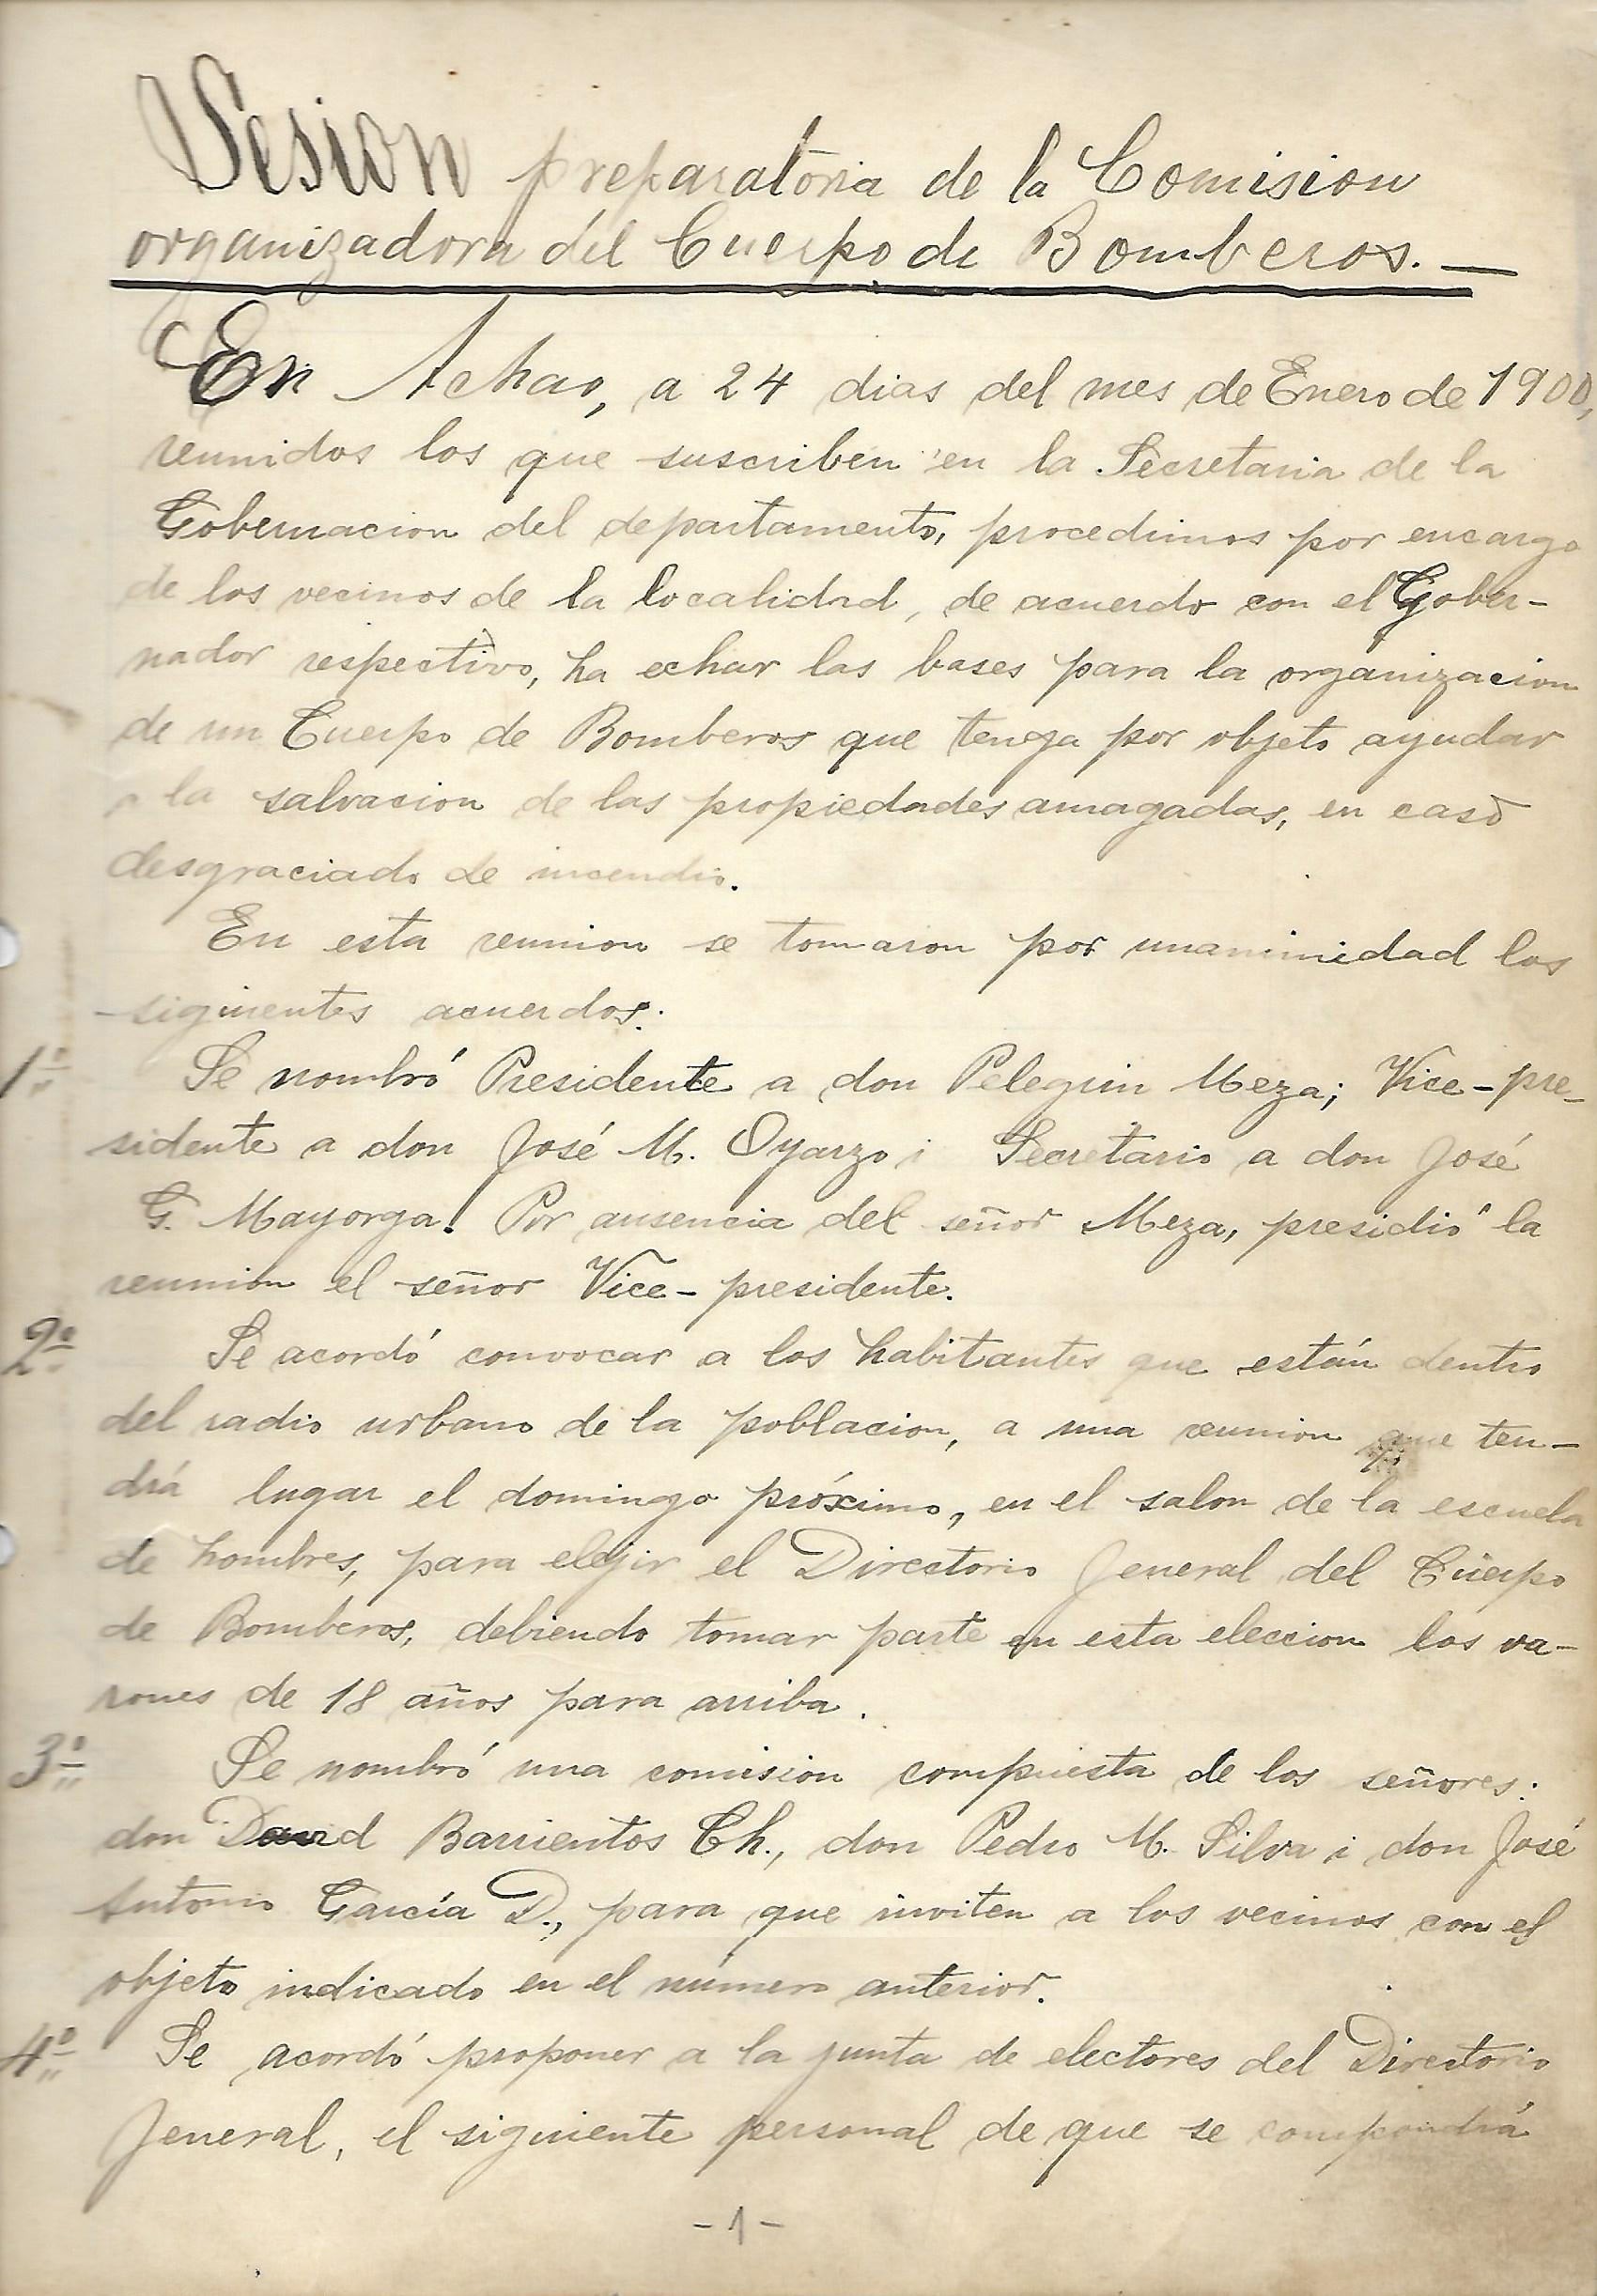 Sesion preparatoria de la Comision
organizadora del Cuerpo de Bomberos.—
En Achao, a 24 dias del mes de Enero de 1900,
reunidos los que suscriben en la Secretaria de la
Gobernacion del departamento, procedimos por encargo
de los vecinos de la localidad, de acuerdo con el Gober-
nador respectivo, ha echar las bases para la organizacion
de un Cuerpo de Bomberos que tenga por objeto ayudar
a la salvacion de las propiedades amagadas, en caso
desgraciado de incendio.
En esta reunion se tomaron por unanimidad los
siguientes acuerdos:
1º Se nombró Presidente a don Pelegrin Meza; Vice-pre-
sidente a don José M. Oyarzo i Secretario a don José
G. Mayorga. Por ausencia del señor Meza, presidió la
reunion el señor Vice-presidente.
2º Se acordó convocar a los habitantes que están dentro
del radio urbano de la poblacion, a una reunion que ten-
drá lugar el domingo próximo, en el salon de la escuela
de hombres, para elejir el Directorio Jeneral del Cuerpo
de Bomberos, debiendo tomar parte en esta eleccion los va-
rones de 18 años para arriba.
3º Se nombró una comision compuesta de los señores:
don David Barrientos Ch., don Pedro M. Silva i don José
Antonio García D., para que inviten a los vecinos con el
objeto indicado en el número anterior.
4º Se acordó proponer a la junta de electores del Directorio
Jeneral, el siguiente personal de que se compondrá
-1-